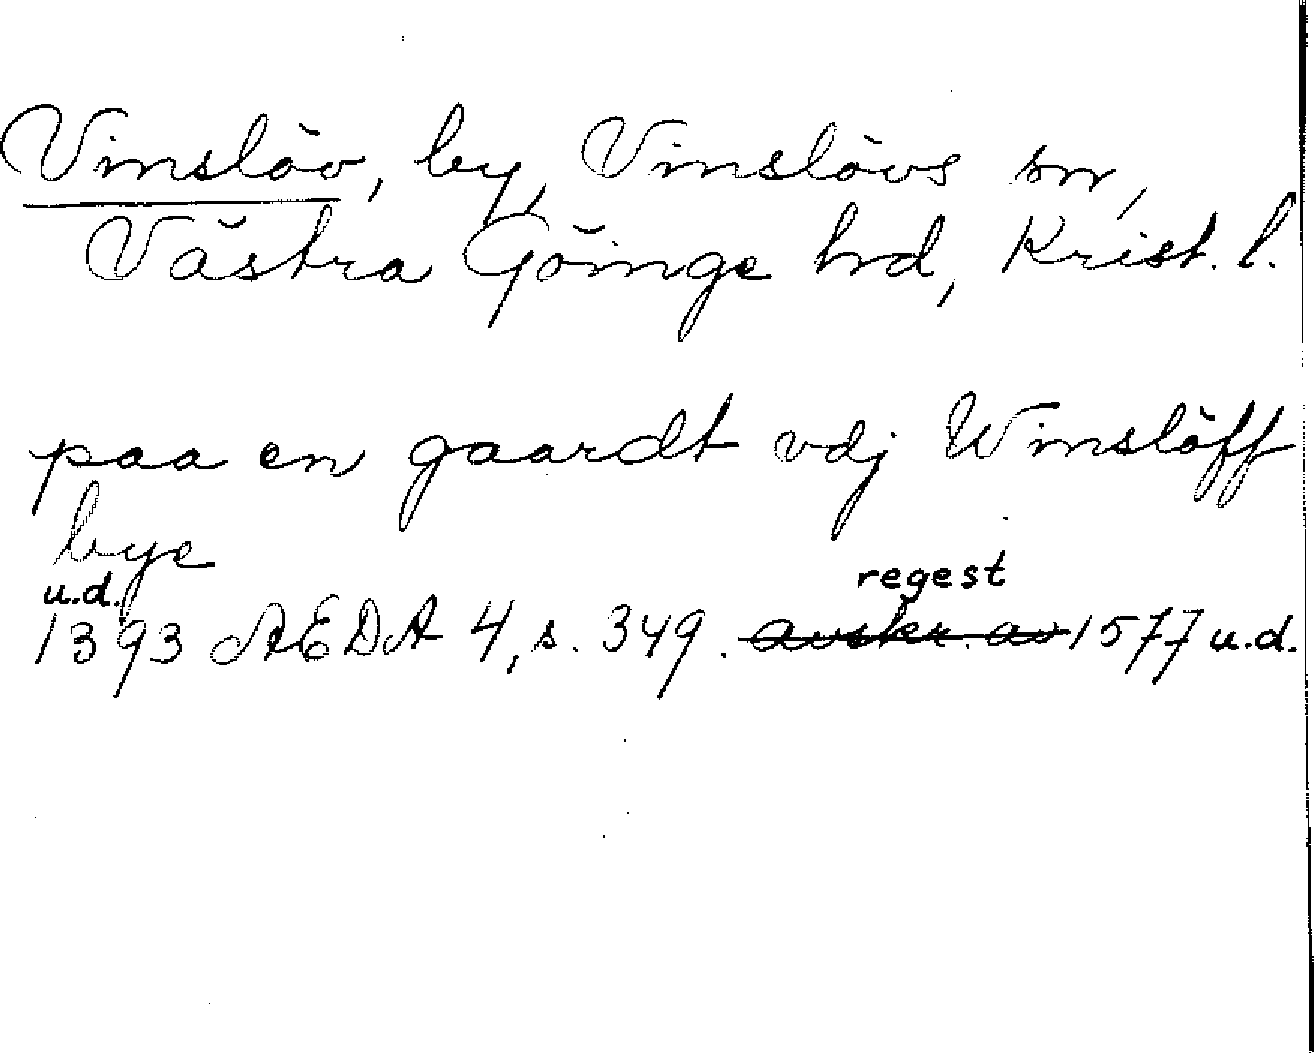 Vinslöv, by, Vinslövs sn,
Västra Göinge hd, Krist. l.
paa en gaardt vdj Winslöff
bye
u.d. regest
1393 AEDA 4, s. 349. avskr. av 1577 u.d.